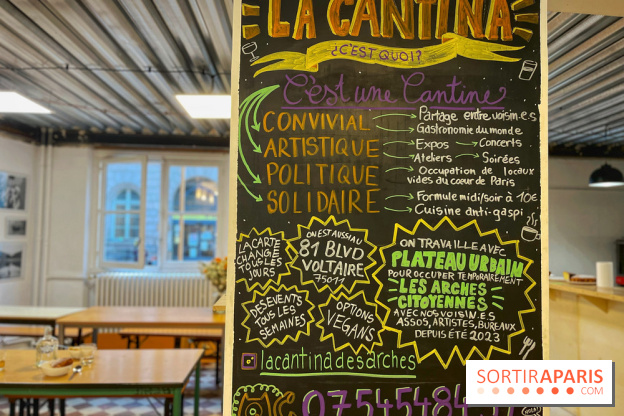 LA CANTINA
¿C'EST QUOI?
C'est une Cantine
CONVIVIAL
Partage entre voisin.e.s
Gastronomie du monde
ARTISTIQUE
Expos
Concerts
Ateliers
Soirées
POLITIQUE
Occupation de locaux
vides au cœur de Paris
SOLIDAIRE
Formule midi/soir à 10€
Cuisine anti-gaspi
LA CARTE
CHANGE
TOUS LES
JOURS
ON EST AUSSI AU
81 BLVD
VOLTAIRE
75011
DES EVENTS
TOUS LES
SEMAINES
OPTIONS
VEGANS
ON TRAVAILLE AVEC
PLATEAU URBAIN
POUR OCCUPER TEMPORAIREMENT
LES ARCHES
CITOYENNES
AVEC NOS VOISIN.ES
ASSOS, ARTISTES, BUREAUX
DEPUIS ÉTÉ 2023
lacantinadesarches
SORTIRAPARIS
.COM
SORTIRAPARIS
.COM